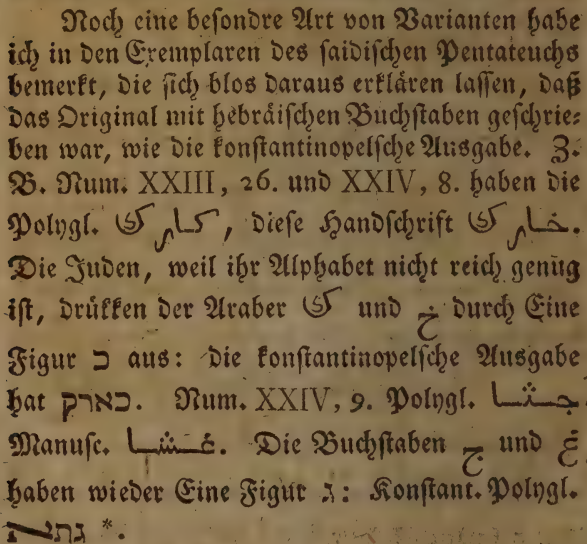 Noch eine besondre Art von Varianten habe
ich in den Exemplaren des saidischen Pentateuchs
bemerkt, die sich blos daraus erklären lassen, daß
das Original mit hebräischen Buchstaben geschrie-
ben war, wie die konstantinopelsche Ausgabe. Z.
B. Num. XXIII, 26. und XXIV, 8. haben die
Polygl. كارك, diese Handschrift خارك.
Die Juden, weil ihr Alphabet nicht reich genug
ist, drükken der Araber ك und خ durch Eine
Figur כ aus: die konstantinopelsche Ausgabe
hat כארק. Num. XXIV, 9. Polygl. جثا.
Manusc. غشا. Die Buchstaben ج und غ
haben wieder Eine Figur ג: Konstant. Polygl.
גתא *.